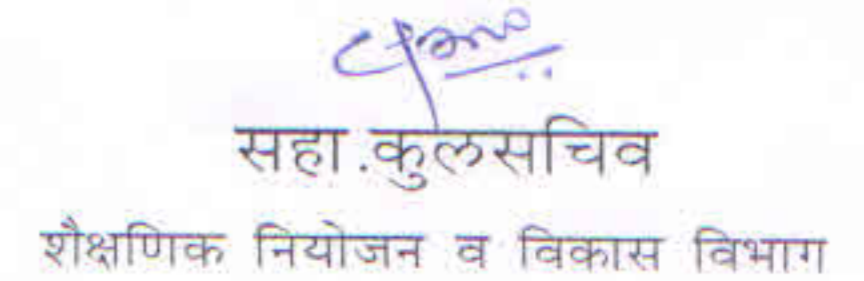 सहा.कुलसचिव
शैक्षणिक नियोजन व विकास विभाग